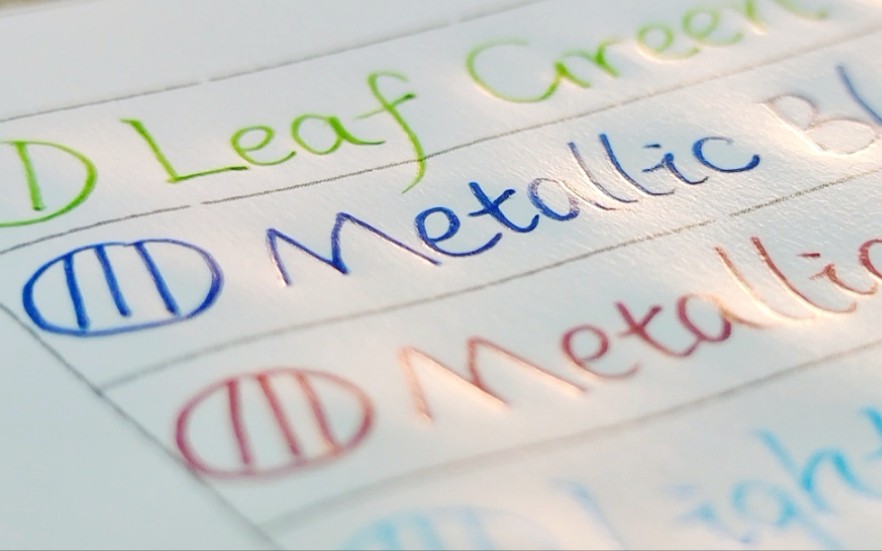 Leaf Green
Metallic
Metallic
Light